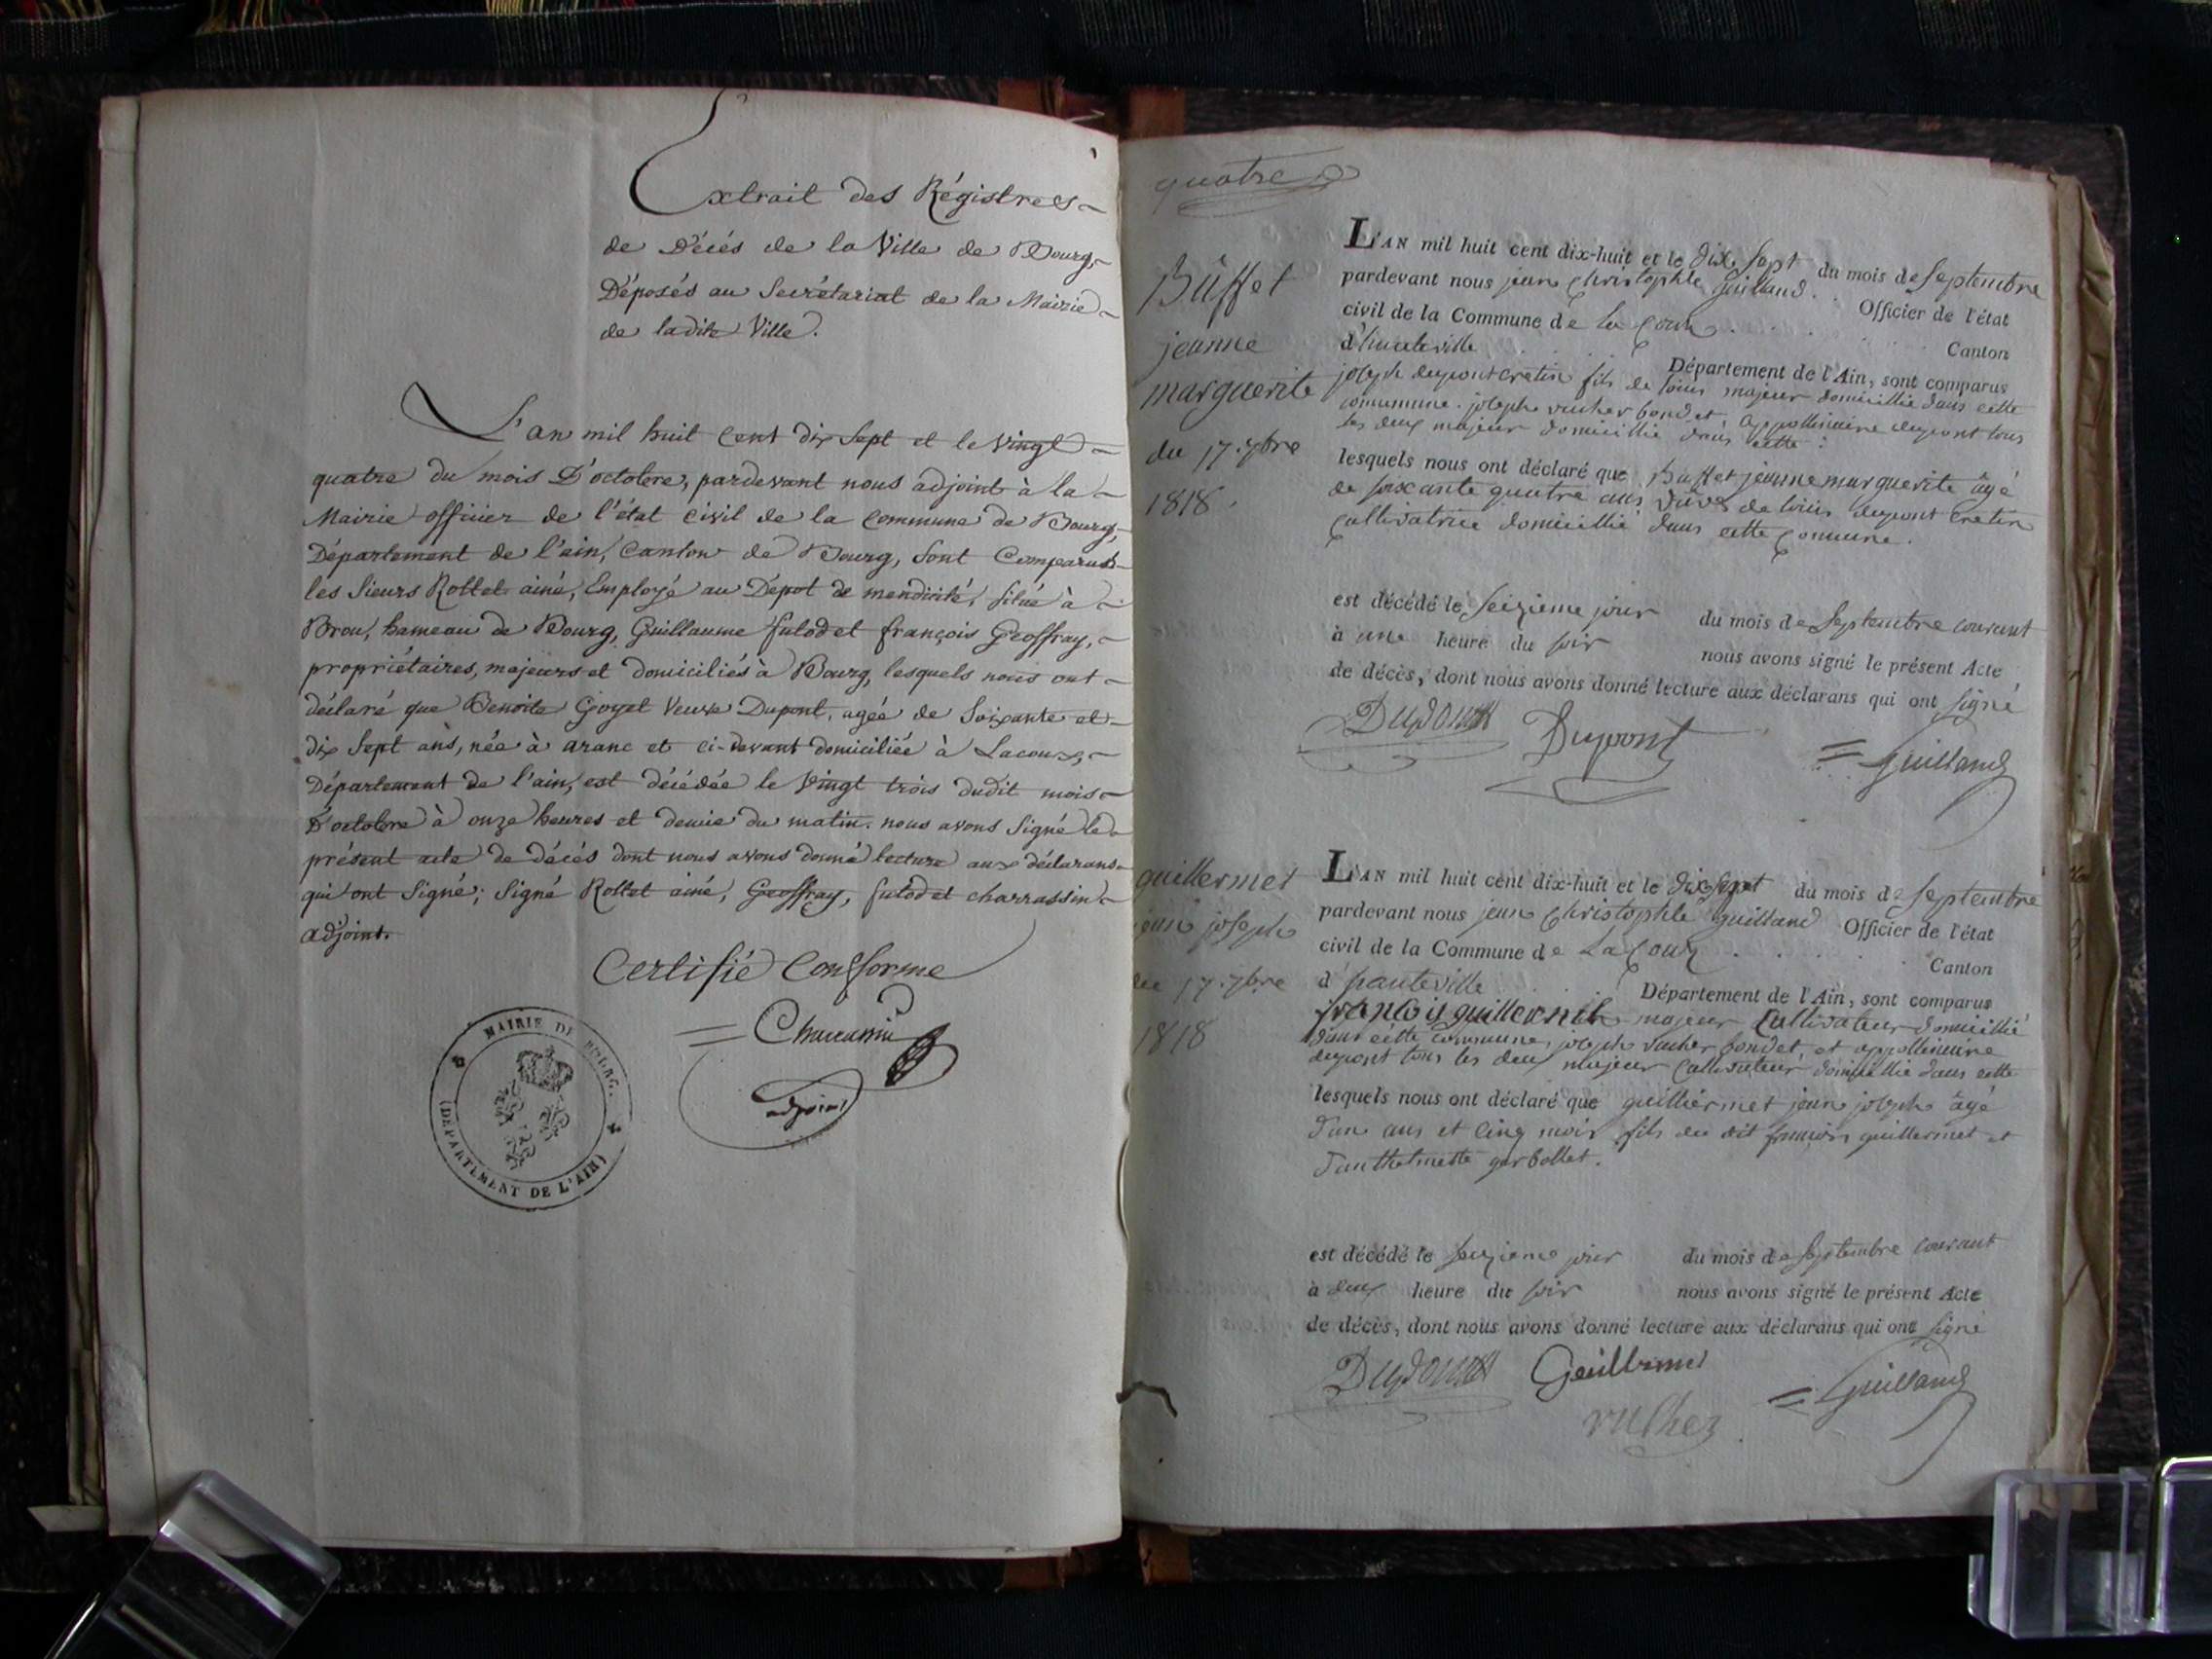 Extrait des Régistres
de Décés de la Ville de Bourg,
Déposés au Secrétariat de la Mairie
de ladite Ville.
L'an mil huit cent dix Sept et le Vingt
quatre du mois D'octobre, pardevant nous adjoint à la
Mairie officier de l'état civil de la commune de Bourg,
Département de l'ain, Canton de Bourg, sont Comparus
les Sieurs Rollet ainé, Employé au Dépot de mendicité, situé à
Brou, hameau de Bourg, Guillaume futod et françois Geoffray,
propriétaires, majeurs et domiciliés à Bourg, lesquels nous ont
déclaré que Benoite Goyet Veuve Dupont, agée de Soixante et
dix Sept ans, née à aranc et ci-devant domiciliée à Lacoux,
Département de l'ain, est décédée le Vingt trois dudit mois
D'octobre à onze heures et demie du matin. nous avons Signé le
présent acte de décés dont nous avons donné lecture aux déclarans
qui ont Signé; Signé Rollet ainé, Geoffray, futod et charrassin
adjoint.
Certifié Conforme
Charrassin
adjoint
MAIRIE DE BOURG.
(DÉPARTEMENT DE L'AIN)
quatre
Buffet
jeanne
marguerite
du 17. 7bre
1818.
L'AN mil huit cent dix-huit et le dix sept du mois de Septembre
pardevant nous jean Christophle Guilland . . Officier de l'état
civil de la Commune de la Coux . . . Canton
d'hauteville . . . Département de l'Ain, sont comparus
joseph dupont cretin fils de louis majeur domicillié dans cette
commune. joseph vucher bondet, appollinaire dupont tous
les deux majeur domicillié dans cette :
lesquels nous ont déclaré que Buffet jeanne marguerite âgé
de soixante quatre ans vûve de louis dupont cretin
Cultivatrice domicillié dans cette Comune.
est décédé le Seizieme jour du mois de Septembre courant
à une heure du soir nous avons signé le présent Acte
de décès, dont nous avons donné lecture aux déclarans qui ont signé
Dupont
=Guilland
guillermet
jean joseph
du 17. 7bre
1818
L'AN mil huit cent dix-huit et le dix sept du mois de Septembre
pardevant nous jean Christophle Guilland Officier de l'état
civil de la Commune de La Coux . . . Canton
d'hauteville . . . Département de l'Ain, sont comparus
françois guillermet majeur Cultivateur domicillié
dans cette commune, joseph vucher bondet, et appollinaire
dupont tous les deux majeur Cultivateur domicillié dans cette
lesquels nous ont déclaré que guilliermet jean joseph âgé
d'un ans et cinq mois fils du dit françois guillermet et
d'anthelmette garbollet.
est décédé le seizieme jour du mois de Septembre courant
à deux heure du soir nous avons signé le présent Acte
de décès, dont nous avons donné lecture aux déclarans qui ont signé
=Guilland